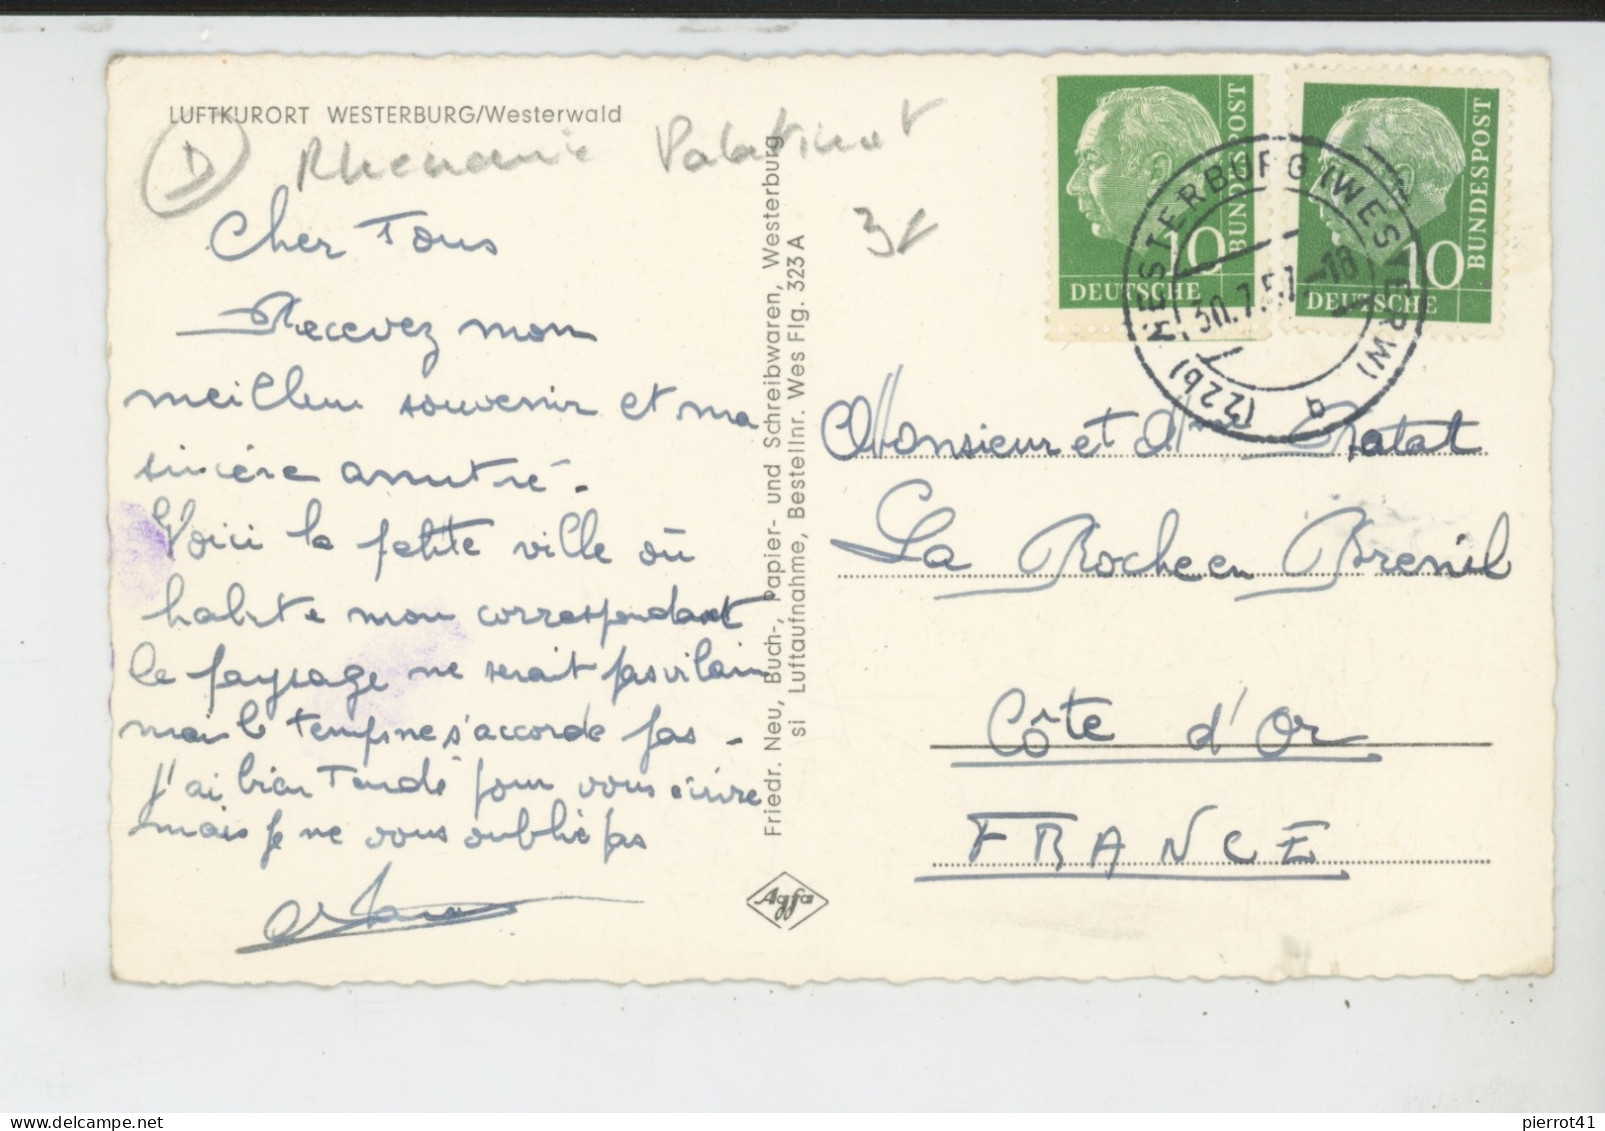 LUFTKURORT WESTERBURG/Westerwald
D Rhenanie Palatinat
3€
Cher Tous
Recevez mon
meilleur souvenir et ma
sincère amitié -
Voici la petite ville où
habite mon correspondant
le paysage ne serait pas vilain
mais le temps ne s'accorde pas -
J'ai bien tardé pour vous écrire
mais je ne vous oublie pas
Friedr. Neu, Buch-, Papier- und Schreibwaren, Westerburg
si Luftaufnahme, Bestellnr. Wes Flg. 323 A
Agfa
10 DEUTSCHE BUNDESPOST
10 DEUTSCHE BUNDESPOST
(22b) WESTERBURG (WESTERW) a
30.7.57.-18
Monsieur et Mme
La Roche en Brenil
Côte d'Or
FRANCE
pierrot41